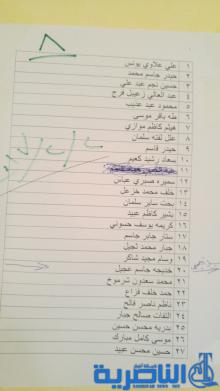 ٨
١ علي علاوي يونس
٢ حيدر جاسم محمد
٣ حسين نجم عبد علي
٤ عبد العالي زغيبل فرج
٥ محمود عبد عذيب
٦ طه باقر موسى
٧ هيثم كاظم موازي
٨ علل لفته سلمان
٩ حيدر قاسم
١٠ سعاد رشيد كعيم
١١
١٢ سميره صبري عباس
١٣ خلف محمد خزعل
١٤ بخت ساير سلمان
١٥ بشير كاظم عبيد
١٦ كريمه يوسف حسوني
١٧ ستار جابر جاسم
١٨ جبار محمد ثجيل
١٩ وسام مجيد شاكر
٢٠ خديجه جاسم عجيل
٢١ محمد سعدون شرموخ
٢٢ حمد خلف فزاع
٢٣ ناظم ناصر فالح
٢٤ التفات صالح جبار
٢٥ بدريه محسن حسين
٢٦ موسى كامل مبارك
٢٧ حسين محسن عبيد
الناصرية